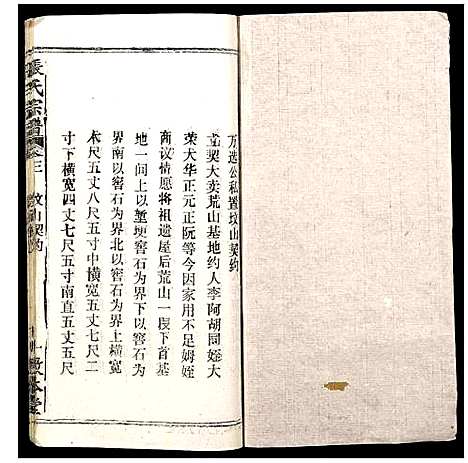 万选公私置坟山契约
立契大卖荒山基地约人李阿胡同姪大
荣犬华正元正阮等今因家用不足姆姪
商议情愿将祖遗屋后荒山一段下首基
地一问上以堑埂窖石为界下以窖石为
界南以窖石为界北以窖石为界上横宽
木尺五丈八尺五寸中横宽五丈七尺二
寸下横宽四丈七尺五寸南直五丈五尺
張氏宗譜
卷三
坟山契约